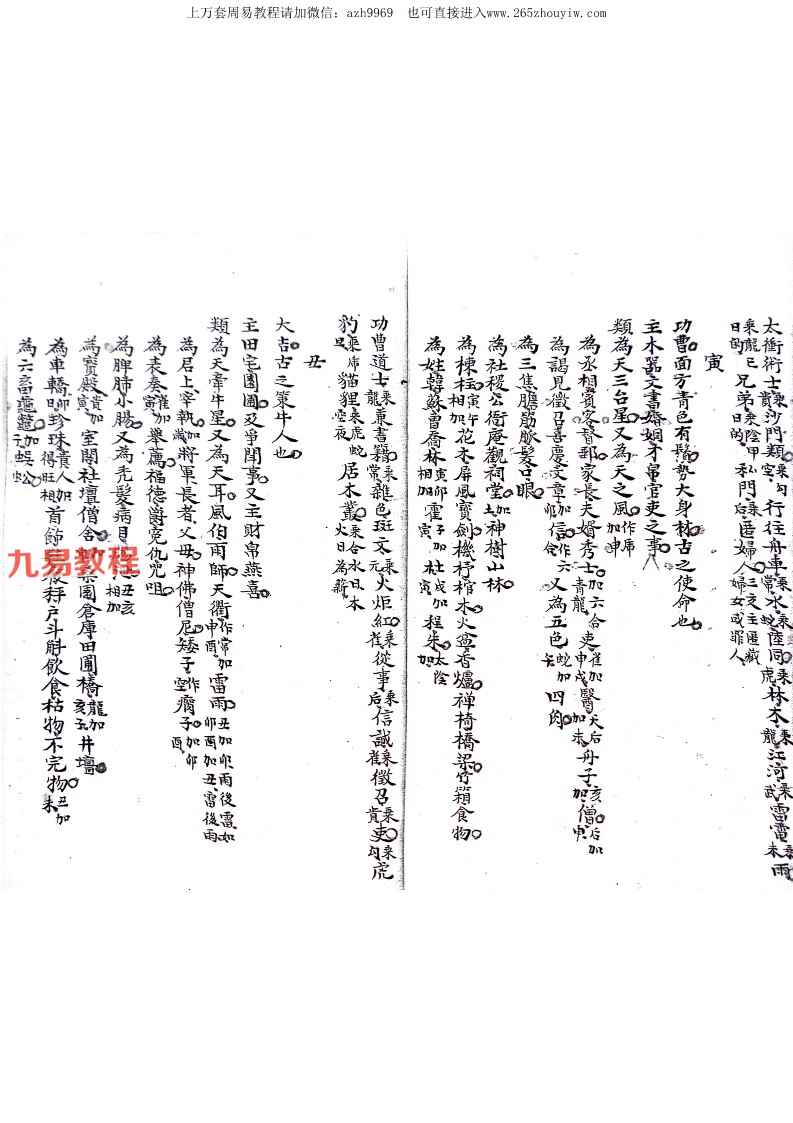 上万套周易教程请加微信：azh9969　也可直接进入www.265zhouyiw.com
太衝術士乘貴沙門乘勾類空行往舟車乘常水乘蛇陸同乘虎林木乘龍江河乘武雷電乘未雨
乘龍己日的兄弟乘陰甲日的私門乘后匿婦人三交主匿藏婦女或罪人
寅
功曹面方青色有鬚勢大身材古之使命也
主木器文書婚姻才帛官吏之事
類為天三台星又為天之風作席加申
為丞相賓客督郵家長夫婿秀士加六合青龍吏雀加申戌醫天后加未舟子亥加僧后加申
為謁見徵召喜慶文章加卯信作六合又為五色蛇加四肉
為三焦膽筋脈髮口眼
為社稷公衙庵觀祠堂加土神樹山林
為棟柱寅午相加花木屏風寶劍機杼棺木火盆香爐禅椅橋梁竹箱食物
為姓韓蘇曾喬林寅卯相加霍子加寅杜戌加寅程朱太陰加
功曹道士乘龍東書籍乘常雜色斑文乘元火炬紅乘雀從事乘后信誠乘雀徵召乘貴吏乘勾虎
豹乘虎旦貓狸乘虎蛇空夜居木叢乘合水日木火日為薪
丑
大吉古之策牛人也
主田宅園圃及爭鬪事又主財帛燕喜
類為天牽牛星又為天耳風伯雨師天衢作常加申酉雷雨丑加卯雨後雷如卯酉加丑雷後雨
為君上宰執加戌將軍長者父母神佛僧尼矮子作空瘸子加卯酉
為表奏雀加寅舉薦福德爵寃仇咒咀
為脾肺小腸又為禿髮病目丑亥相加
為寶殿貴加寅室閣社壇僧舍桑園倉庫田圃橋龍加亥子井壇
為車轎卯日珍珠貴人加得旺相首飾秤戶斗斛飲食枯物不完物丑加未
為六畜龜鼈加子蜈蚣
九易教程